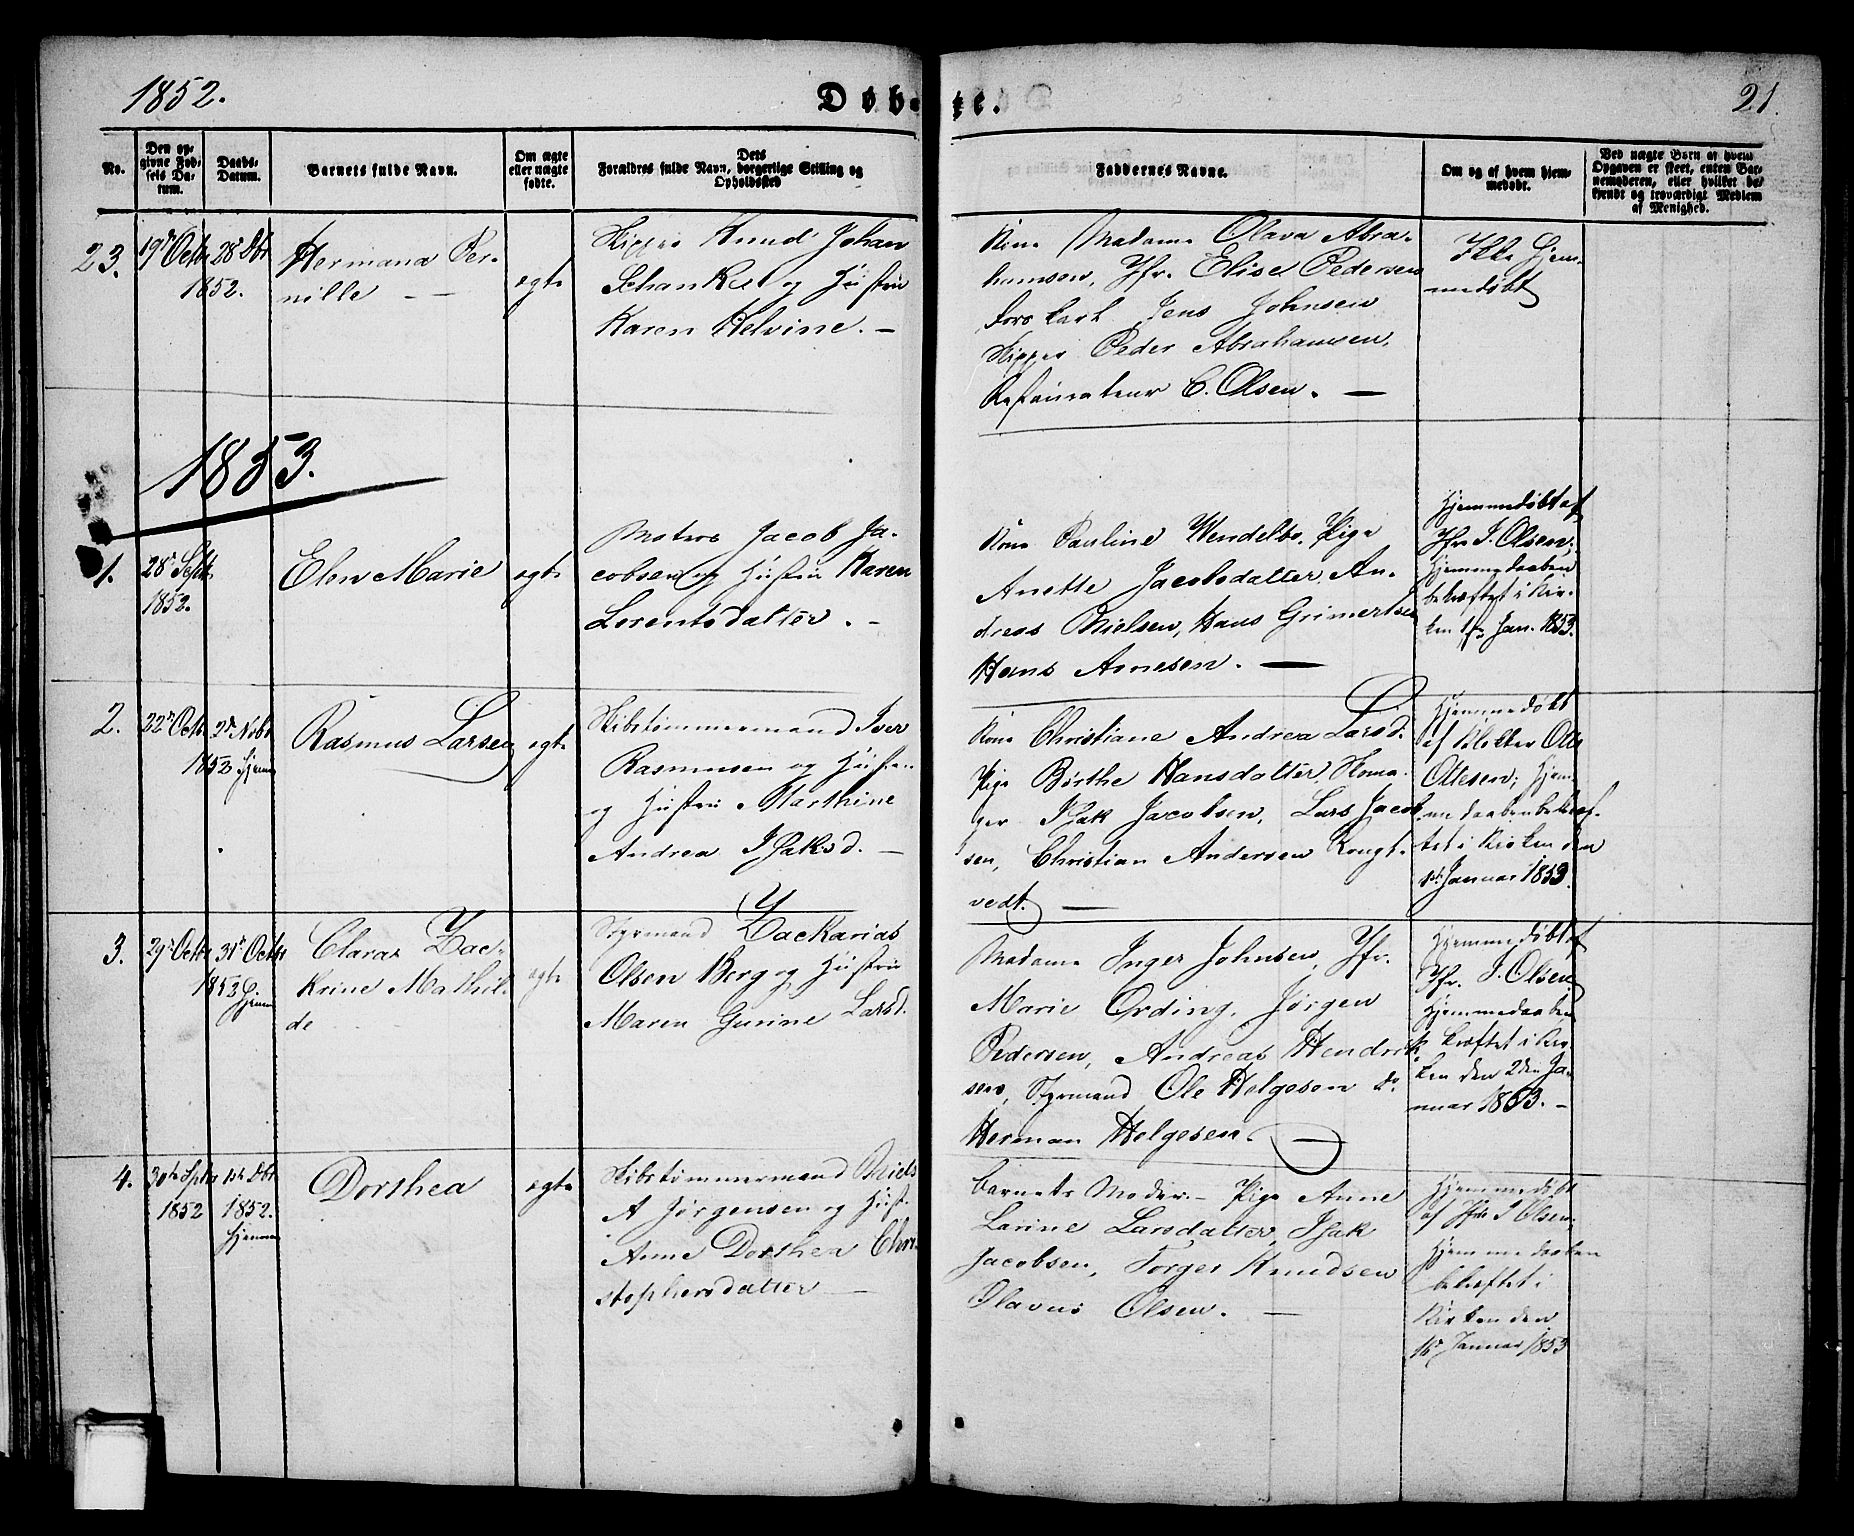 1852.
Døbte.
21.
No.
Den op-
givne Fød-
sels Da-
tum.
Daabs-
Datum.
Barnets fulde Navn.
Om ægte
eller uægte
fødte.
Dets
Forældres fulde Navn, borgerlige Stilling og
Opholdssted
Faddernes Navne.
Om og af hvem hjem-
medøbt.
Ved uægte Børn af hvem
Opgaven er skeet, enten Bar-
nemoderen, eller hvilket be-
kjendt og troværdigt Medlem
af Menighed.
23.
19de Octbr
1852.
28 Dbr
Hermana Per-
nille —
ægte
Skipper Knud Johan
Schanke og Hustru
Karen Helvine. —
Kone Madame Olava Abra-
hamsen, Jfr. Elise Pedersen
Jens Johnsen
Skipper Peder Abrahamsen,
Restaurateur C. Olsen. —
Ikke Hjem-
medøbt
1853.
1.
28 Sept
1852.
Elen Marie
ægte
Matros Jacob Ja-
cobsen og Hustru Karen
Lorentsdatter. —
Kone Pauline Wendelbo, Pige
Anette Jacobsdatter, An-
dreas Nielsen, Hans Grimertsen
Hans Arnesen. —
Hjemmedøbt af
Jfr J. Olsen;
Hjemmedaaben
bekræftet i Kir-
ken 1ste Jan. 1853.
2.
22de Octb
1852
2de Nvbr
Hjem
Rasmus Larsen
ægte
Skibstømmermand Iver
Rasmusen og Hustru
og Hustru Marthine
Andrea Isaksd. —
Kone Christiane Andrea Larsd.
Pige Børthe Hansdatter,
Isak Jacobsen, Lars Jacob-
sen, Christian Andersen Rongt-
vedt. —
Hjemmedøbt
af Klokker Ole
Olesen; Hjem-
medaaben bekræf-
tet i Kirken den
1ste Januar 1853.
3.
29de Octbr
1852
31te Octbr
Hjem
Clara Zac-
krine Mathil-
de
ægte
Styrmand Zackarias
Olsen Berg og Hustru
Maren Gurine Larsd.
Madame Inger Johnsen, Jfr.
Marie Ording, Jørgen
Pedersen, Andreas Hendrik-
sen, Styrmand Ole Helgesen do
Herman Helgesen. —
Hjemmedøbt af
Jfr. J. Olsen
Hjemmedaaben
kræftet i Kir-
ken den 2den Ja-
nuar 1853. —
4.
30te Sptbr
1852
1ste Dbr
1852.
Hjemme
Dorthea
ægte
Skibstømmermand Niels
A Jørgensen og Hust.
Anne Dorthea Chri-
stophersdatter —
Barnets Moder. — Pige Anne
Larine Larsdatter, Isak
Jacobsen, Torger Knudsen
Olavus Olsen. —
Hjemmedøbt
af Jfr J Olsen;
Hjemmedaaben
bekræftet i
Kirken den
16de Januar 1853